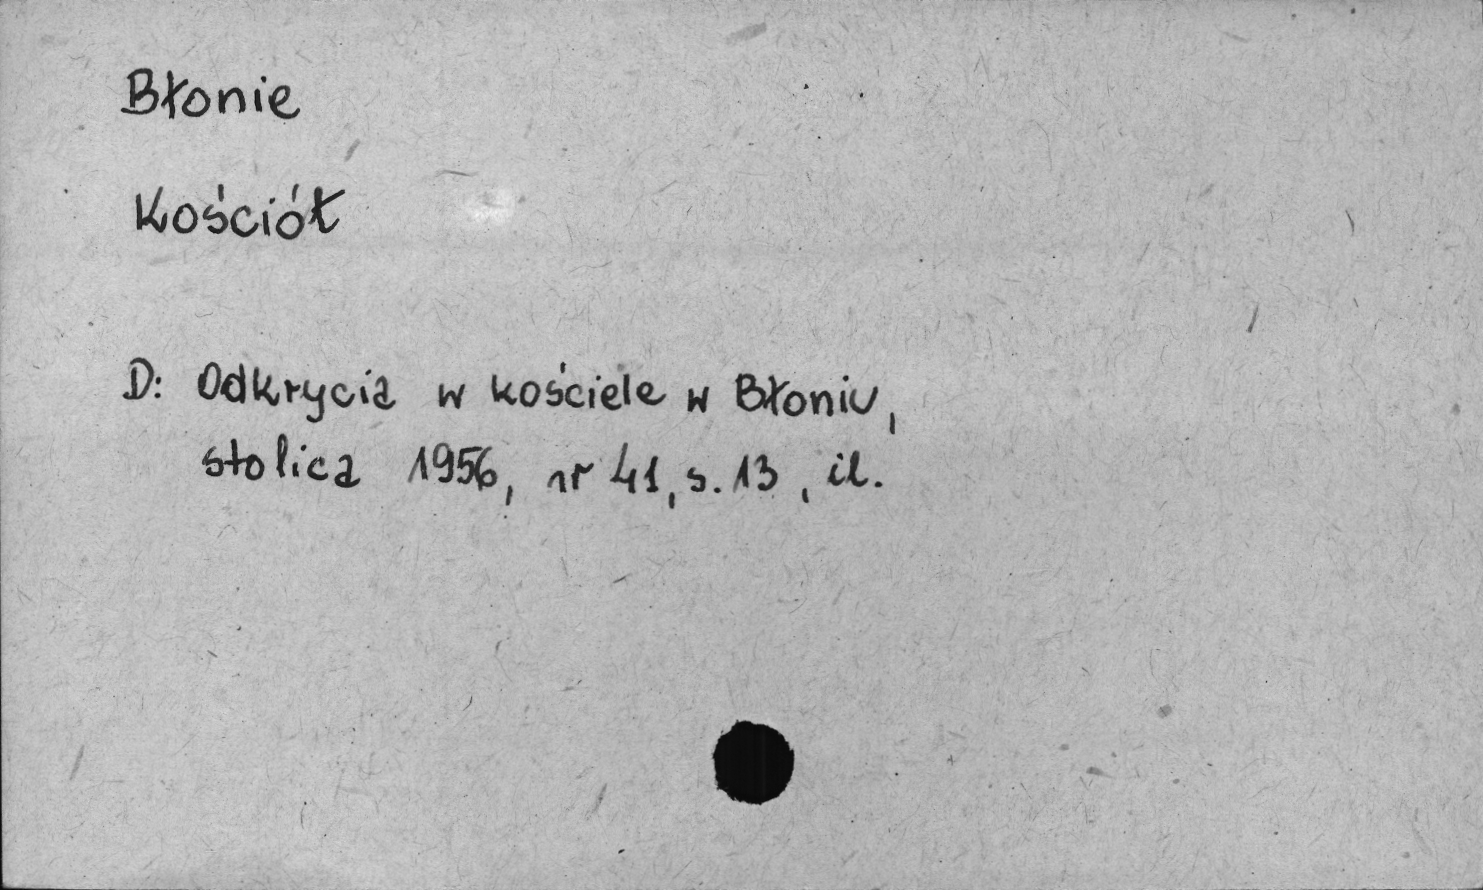 Błonie
Kościół
D: Odkrycia w kościele w Błoniu,
stolica 1956, nr 41, s. 13, il.